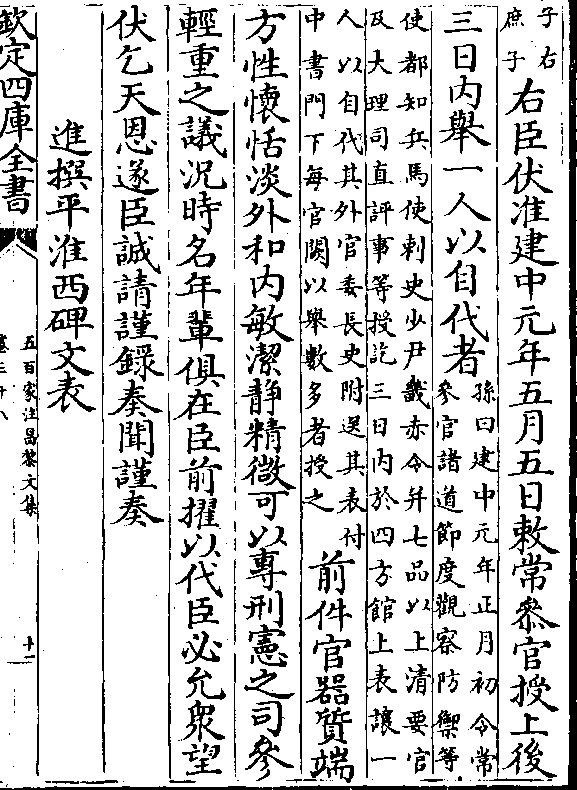 子右
庶子
右臣伏准建中元年五月五日敕常參官授上後
三日内舉一人以自代者
孫曰建中元年正月初令常
參官諸道節度觀察防禦等
使都知兵馬使刺史少尹畿赤令并七品以上清要官
及大理司直評事等授訖三日内於四方館上表讓一
人以自代其外官委長史附送其表付
中書門下每官闕以舉數多者授之
前件官器質端
方性懷恬淡外和内敏潔靜精微可以專刑憲之司參
輕重之議況時名年輩俱在臣前擢以代臣必允衆望
伏乞天恩遂臣誠請謹録奏聞謹奏
進撰平淮西碑文表
欽定四庫全書
五百家注昌黎文集
卷三十八
十一